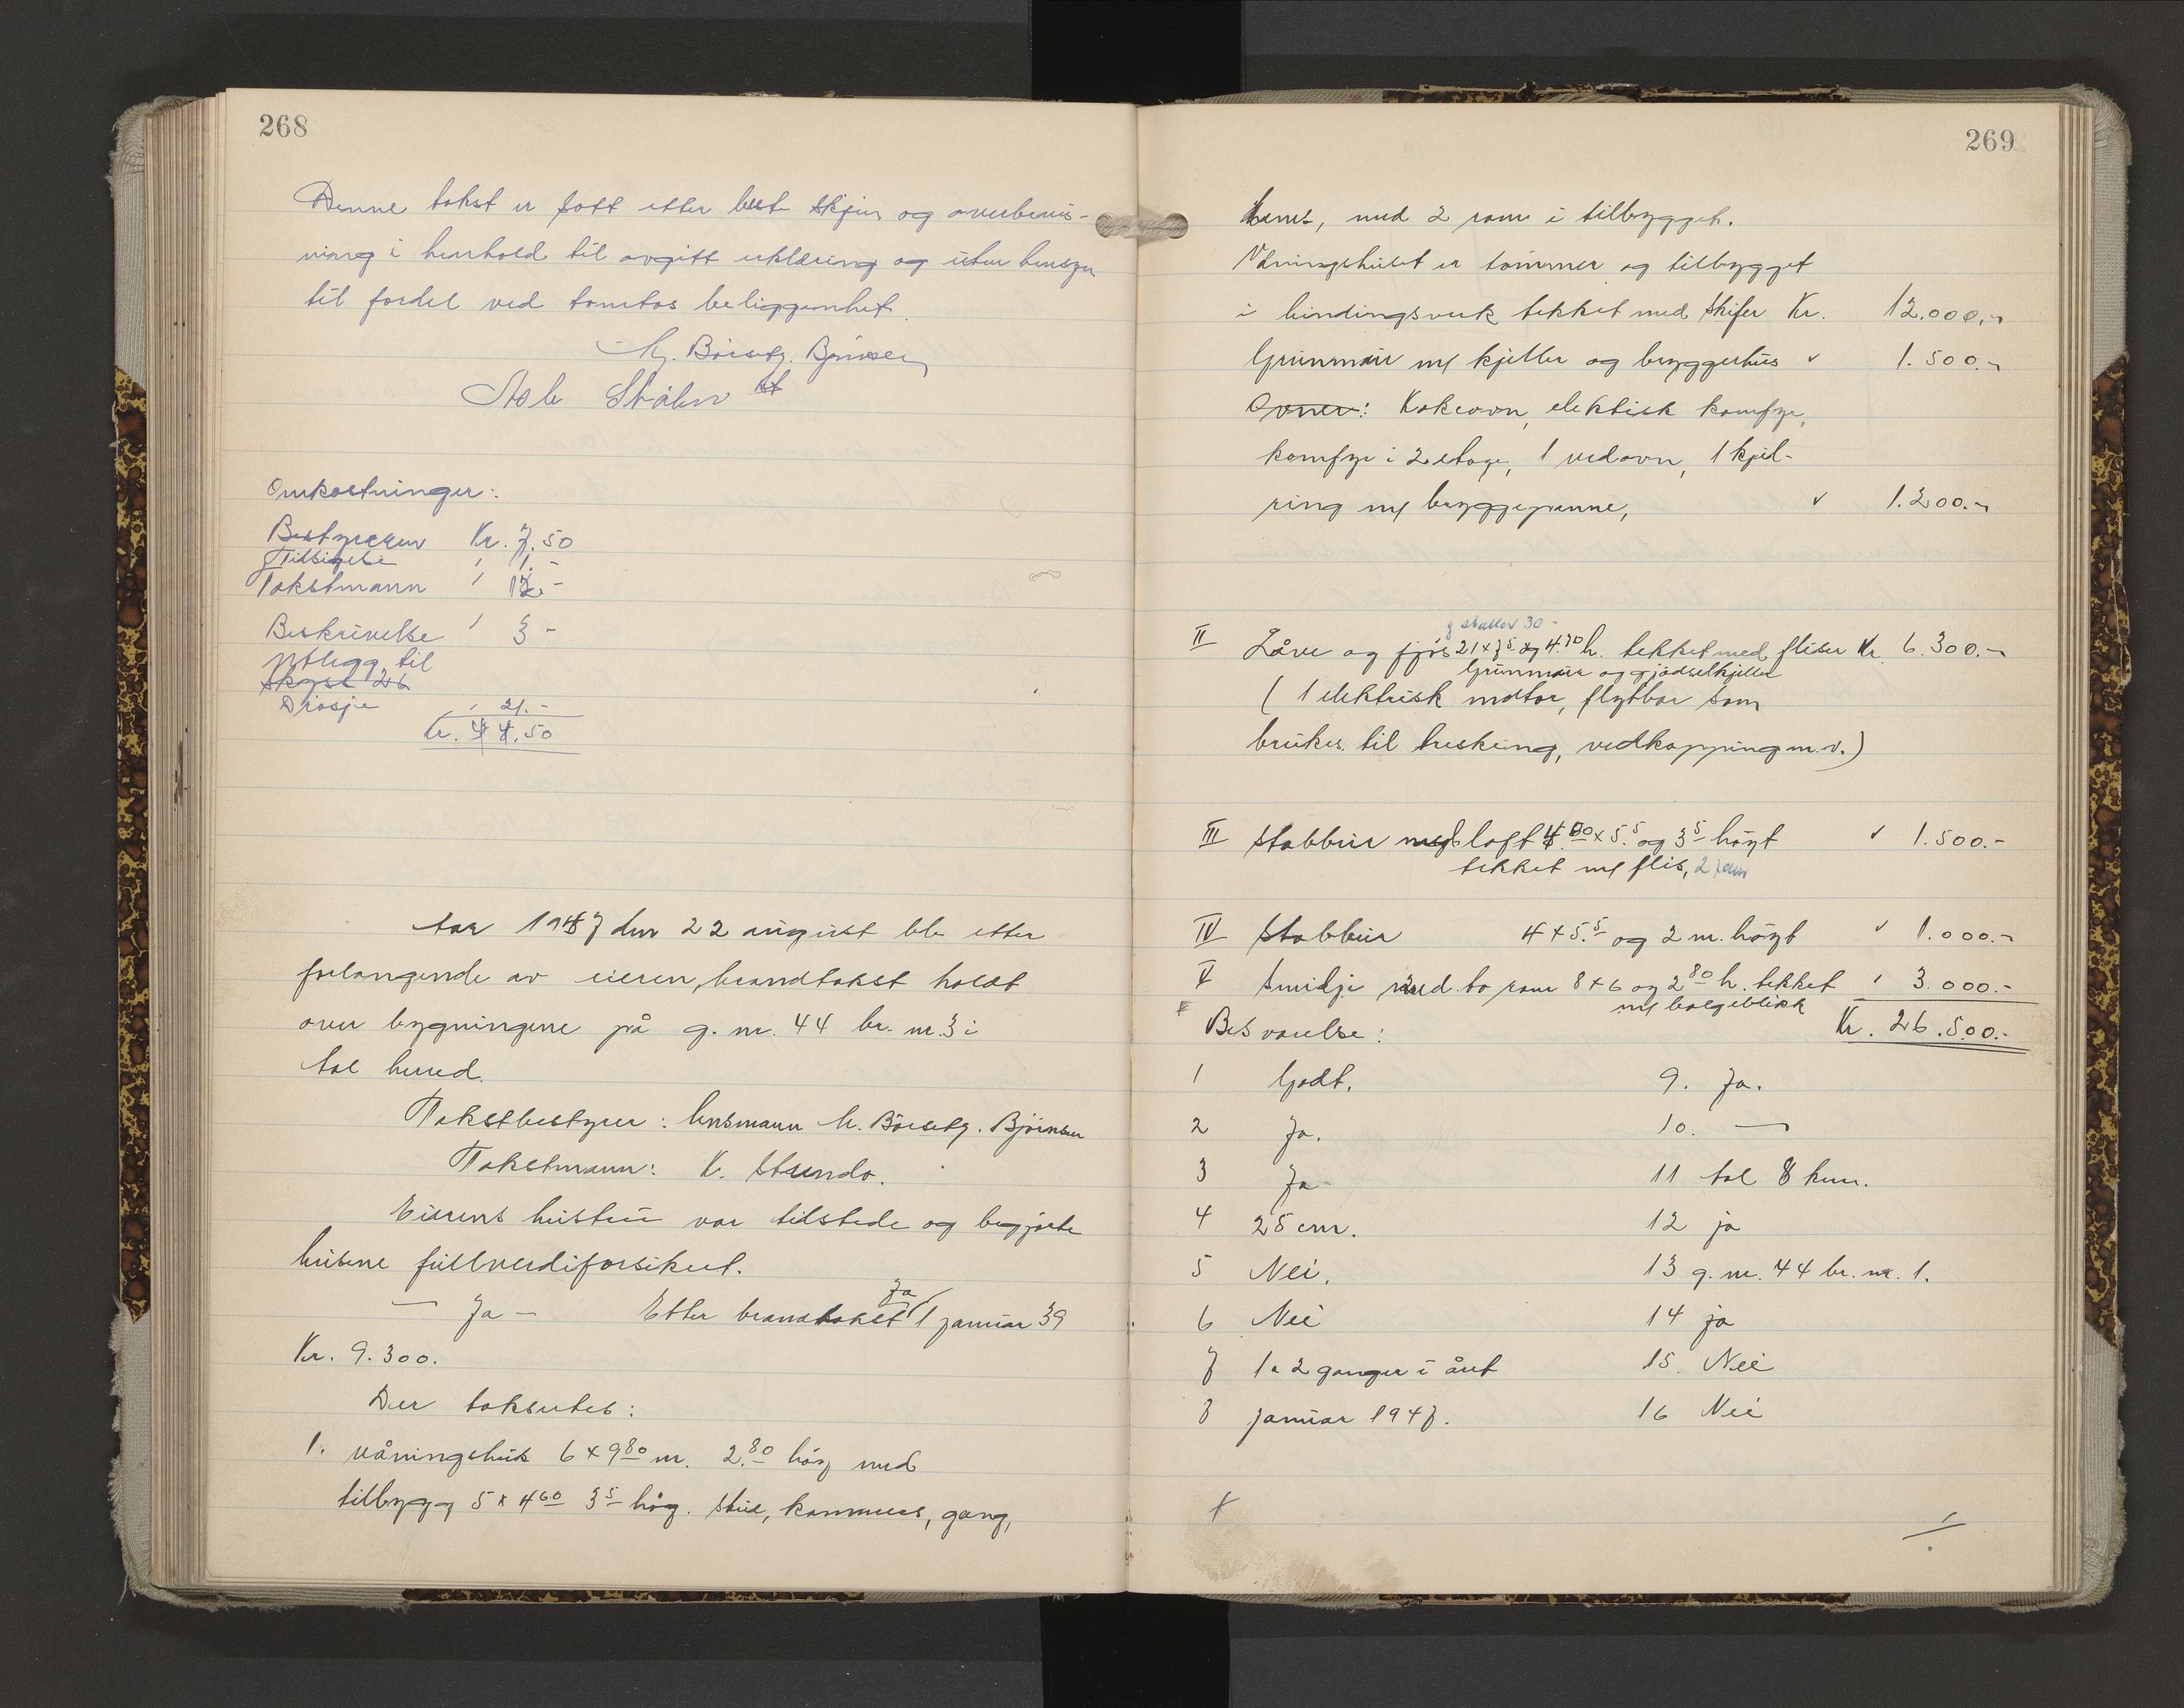 268
Denne takst er satt etter beste skjøn og overbevis-
ning i henhold til avgitt erklæring og uten hensyn
til fordel ved tomtas beliggenhet.
M. Børseth. Bjørnsen
Asle Stråhn
Omkostninger:
Bestyreren Kr. 7.50
Tilsigelse " 1.-
Takstmann " 12.-
Beskrivelse " 3-
Utlegg til
skyss 26
Drosje " 21.-
Kr. 44.50
Aar 1947 den 22 august ble etter
forlangende av eieren, brandtakst holdt
over bygningene på g. nr. 44 br. nr. 3 i
Aal herred.
Takstbestyrer: lensmann M. Børseth. Bjørnsen
Takstmann: K. Strunda.
Eierens hustru var tilstede og begjærte
husene fullverdiforsikret.
— Ja — Etter brandtakst Ja 1 januar 39
Kr. 9.300.
Der takseres:
1. Våningshus 6 x 9 80 m. 2.80 høg med
tilbygg 5 x 4 60 3 5 høg. Stue, kammers, gang,
269
med 2 rom i tilbygget.
Våningshuset er tømmer og tilbygget
i bindingsverk tekket med skifer Kr. 12.000,-
Grunnmur m/ kjeller og bryggerhus " 1.500.-
Ovner: Kokeovn, elektrisk komfyr,
komfyr i 2 etage, 1 vedovn, 1 kjel-
ring m/ bryggepanne, " 1.200.-
II Låve og fjøs 21 x 7 5 og 4.70 h. tekket med fliser Kr. 6.300.-
Grunnmur og gjødselkjeller
( 1 elektrisk motor, flytbar som
brukes til tresking, vedkapping m.v.)
III Stabbur med loft 4.80 x 5.5 og 3 5 høgt " 1.500.-
tekket m/ flis, 2 rom
IV Stabbur 4 x 5.5 og 2 m. høgt " 1.000.-
V Smidje med to rom 8 x 6 og 2 80 h. tekket " 3.000.-
m/ bølgeblikk
Besvarelse: Kr. 26.500.-
1 Godt. 9. Ja.
2 Ja. 10. —
3 Ja 11 Aal 8 km.
4 25 cm. 12 ja
5 Nei. 13 g. nr. 44 br. nr. 1.
6 Nei 14 ja
7 1 a 2 ganger i året 15. Nei
8 januar 1947. 16 Nei